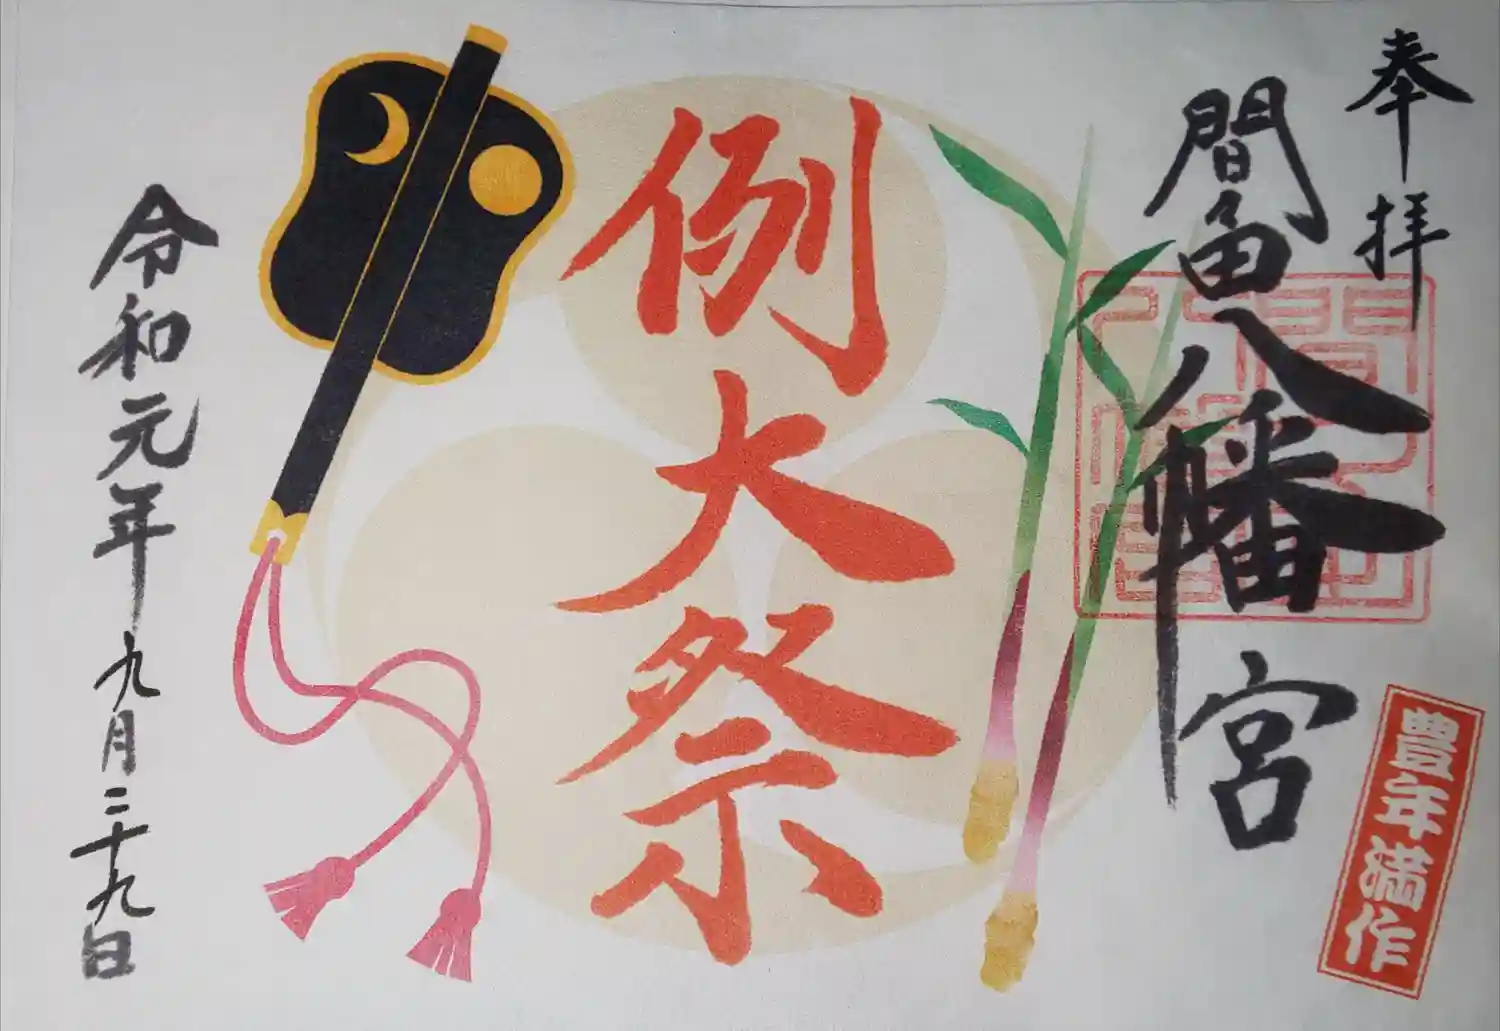 奉拝
間々田八幡宮
豊年満作
例大祭
令和元年九月二十九日